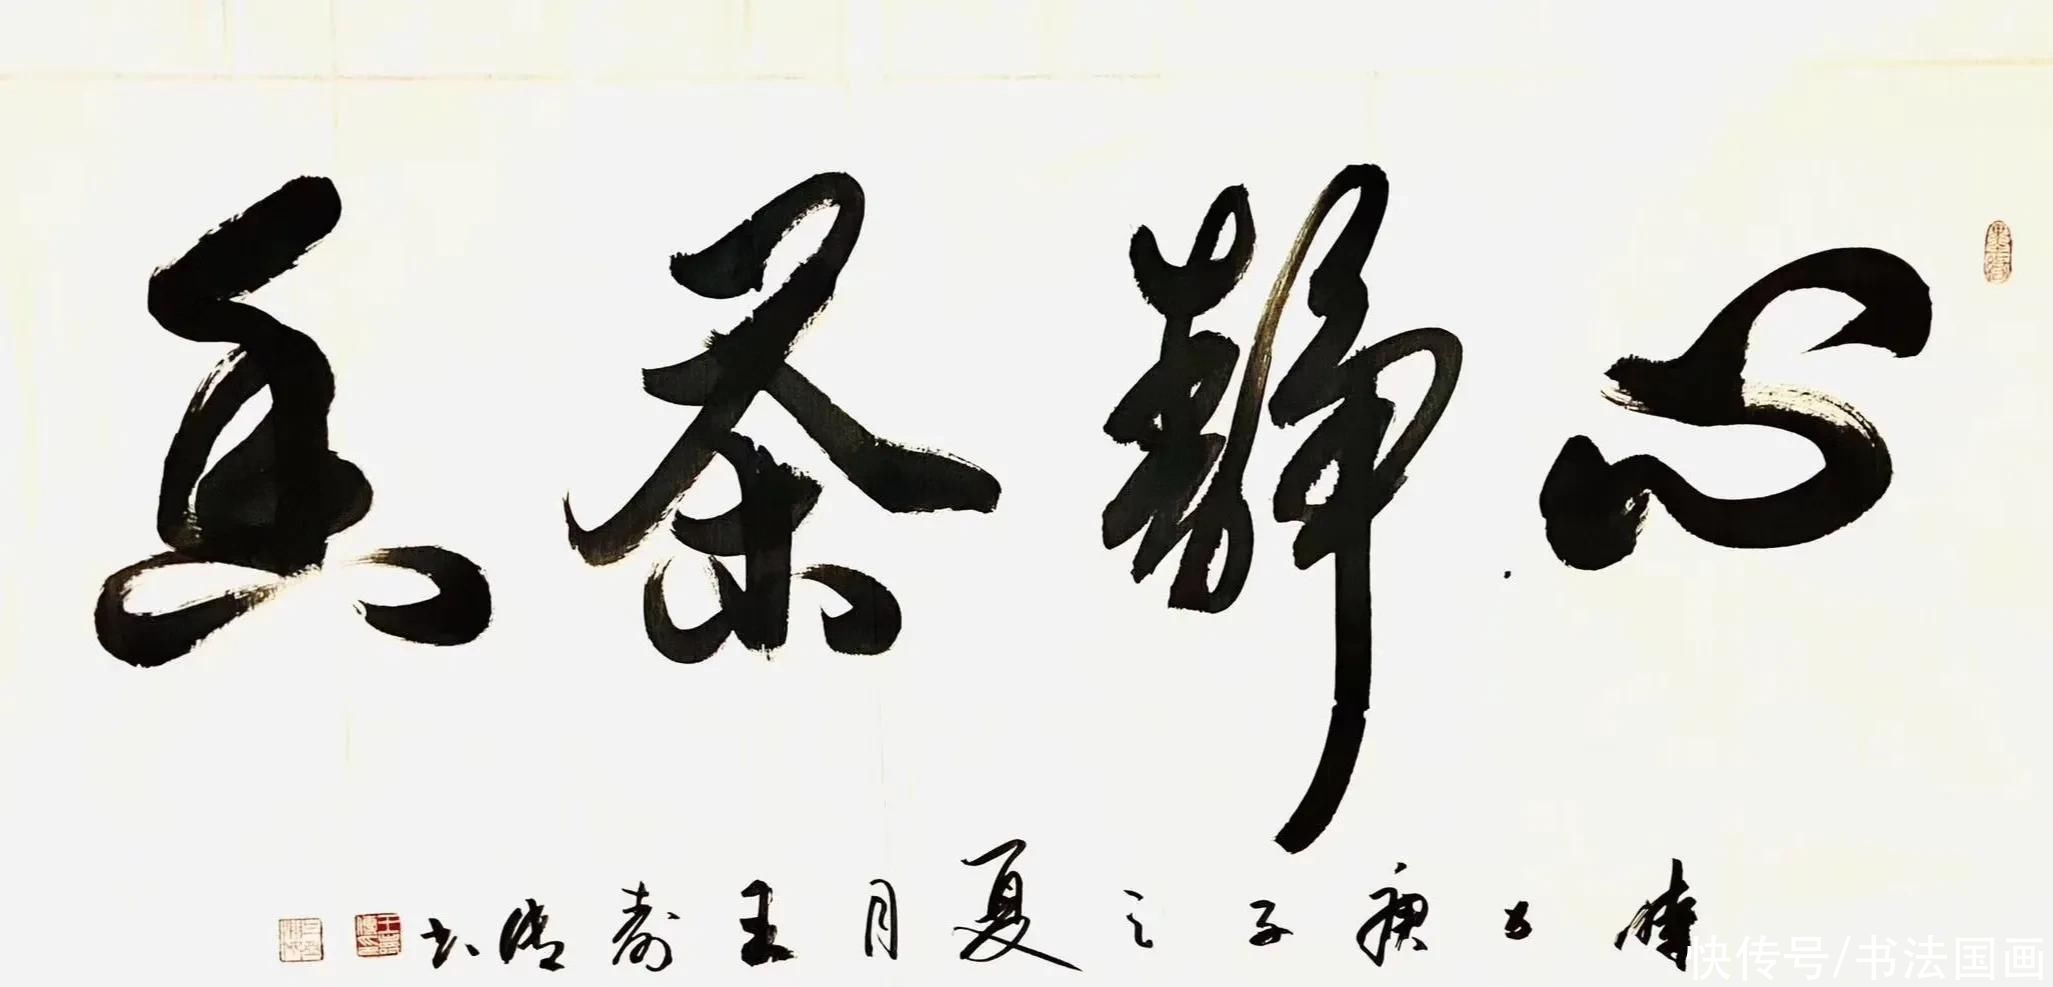 心静茶香
时在庚子之夏月王寿清书
快传号/书法国画